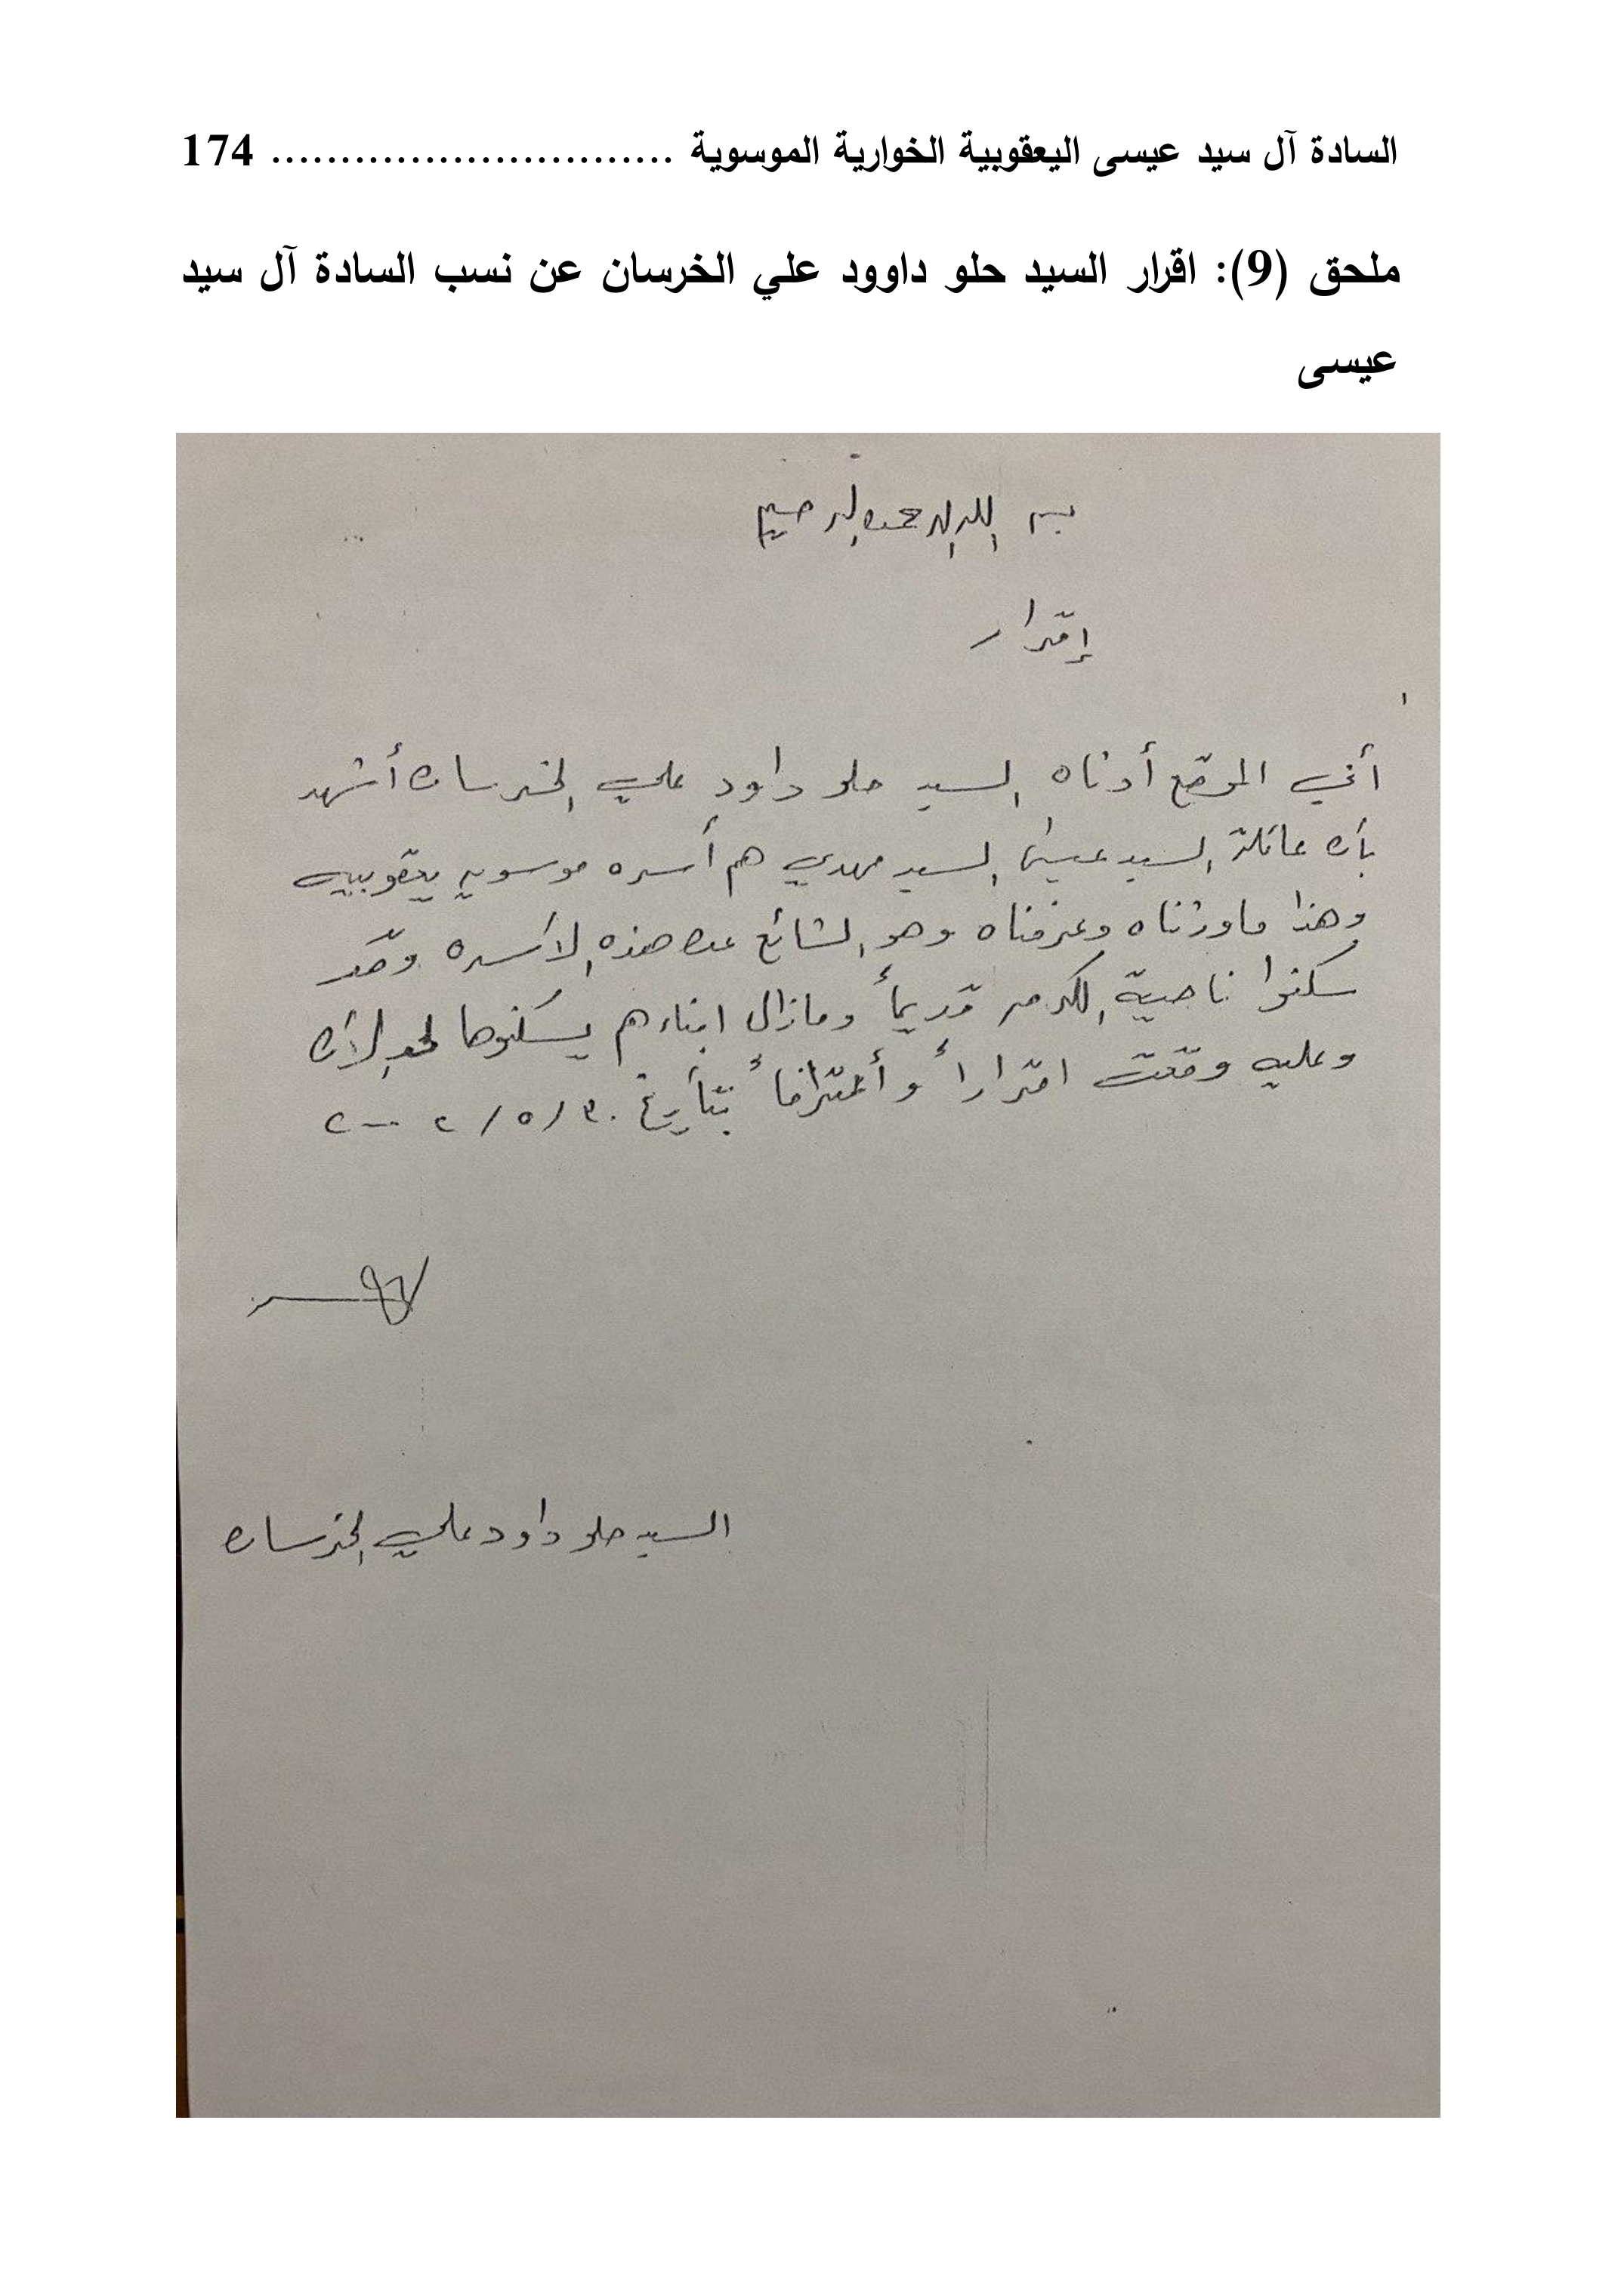 السادة آل سيد عيسى اليعقوبية الخوارية الموسوية ............................ 174
ملحق (9): اقرار السيد حلو داوود علي الخرسان عن نسب السادة آل سيد
عيسى
بسم الله الرحمن الرحيم
إقرار
أني الموقع أدناه السيد حلو داود علي الخرسان أشهد
بأن عائلة السيد عيسى السيد مهدي هم أسره موسويه يعقوبيه
وهذا ماورثناه وعرفناه وهو الشائع عن هذه الأسره وقد
سكنوا ناحية الكرمه قديمأ ومازال ابناءهم يسكنوها لحد الأن
وعليه وقعت اقرارأ وأعترافأ بتأريخ ٣٠/٥/٢٠٠٢
السيد حلو داود علي الخرسان